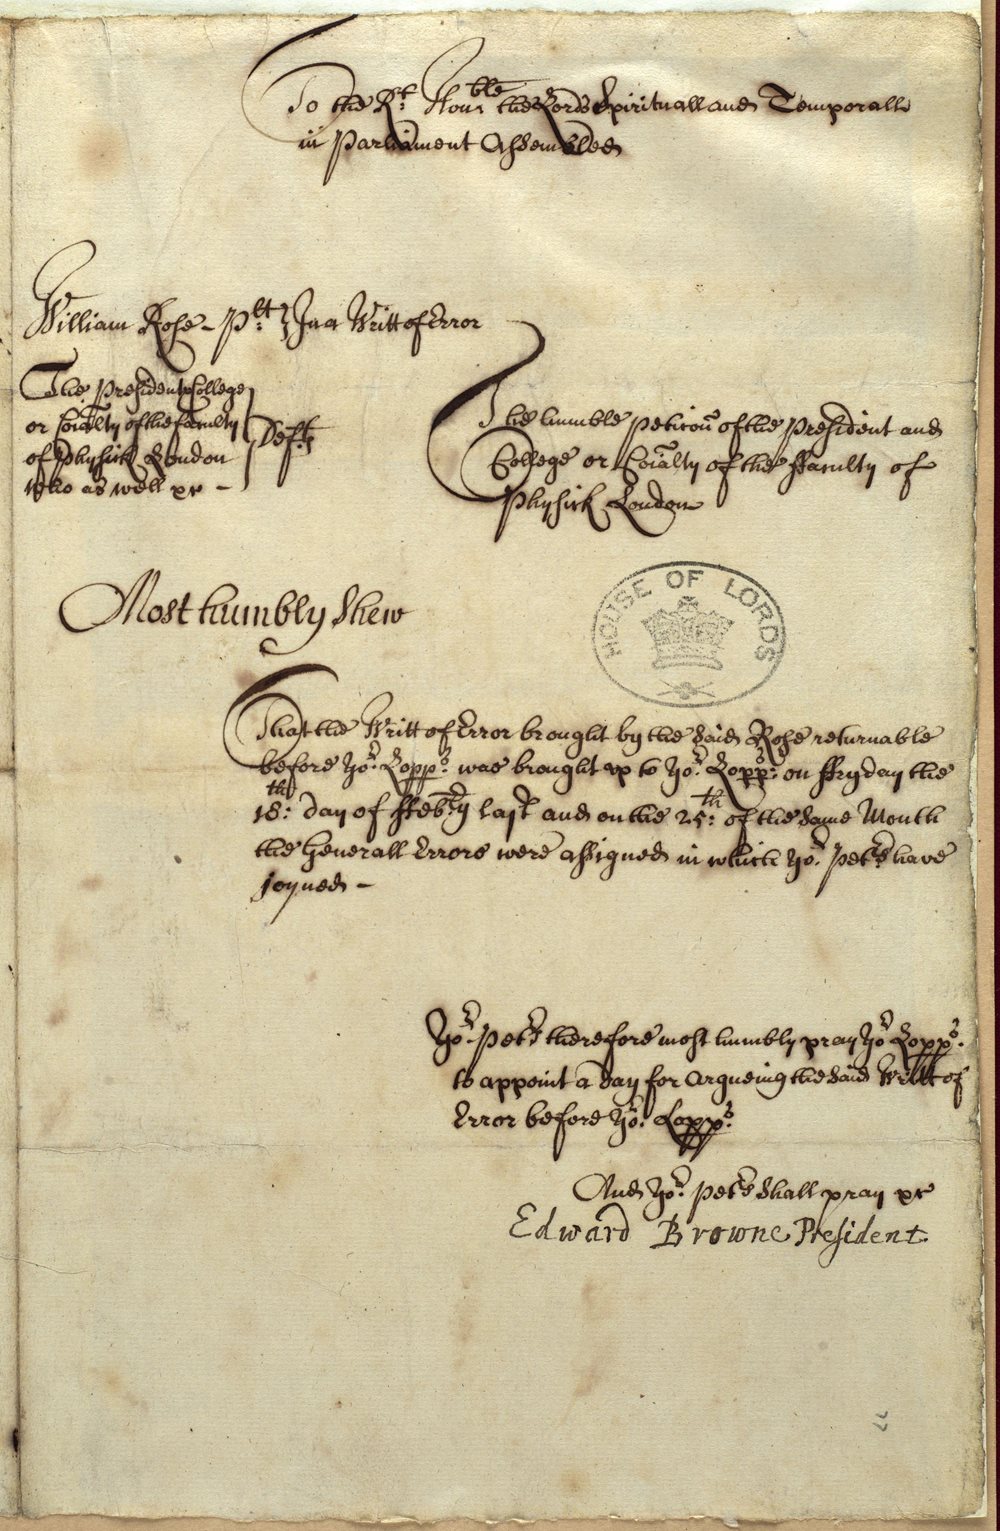 To the Rt. Honble. the Lords Spirituall and Temporall
in Parliament Assembled
William Rose - Plt: } In a Writt of Error
The President & College
or Coialty of the faculty
of Physick London
who as well &c -
} Defts
The humble peticon of the President and
College or Coialty of the ffaculty of
Physick London
Most humbly Shew
HOUSE OF LORDS
That the Writt of Error brought by the said Rose returnable
before Yor: Lopps: was brought up to Yor: Lopps: on ffryday the
18th: day of ffebry last and on the 25th: of the same Month
the Generall Errors were assigned in which Yor: Petrs have
joyned -
Yor: Petrs therefore most humbly pray Yor Lopps:
to appoint a day for argueing the said Writt of
Error before Yor: Lopps:
And Yor: Petrs shall pray &c
Edward Browne President